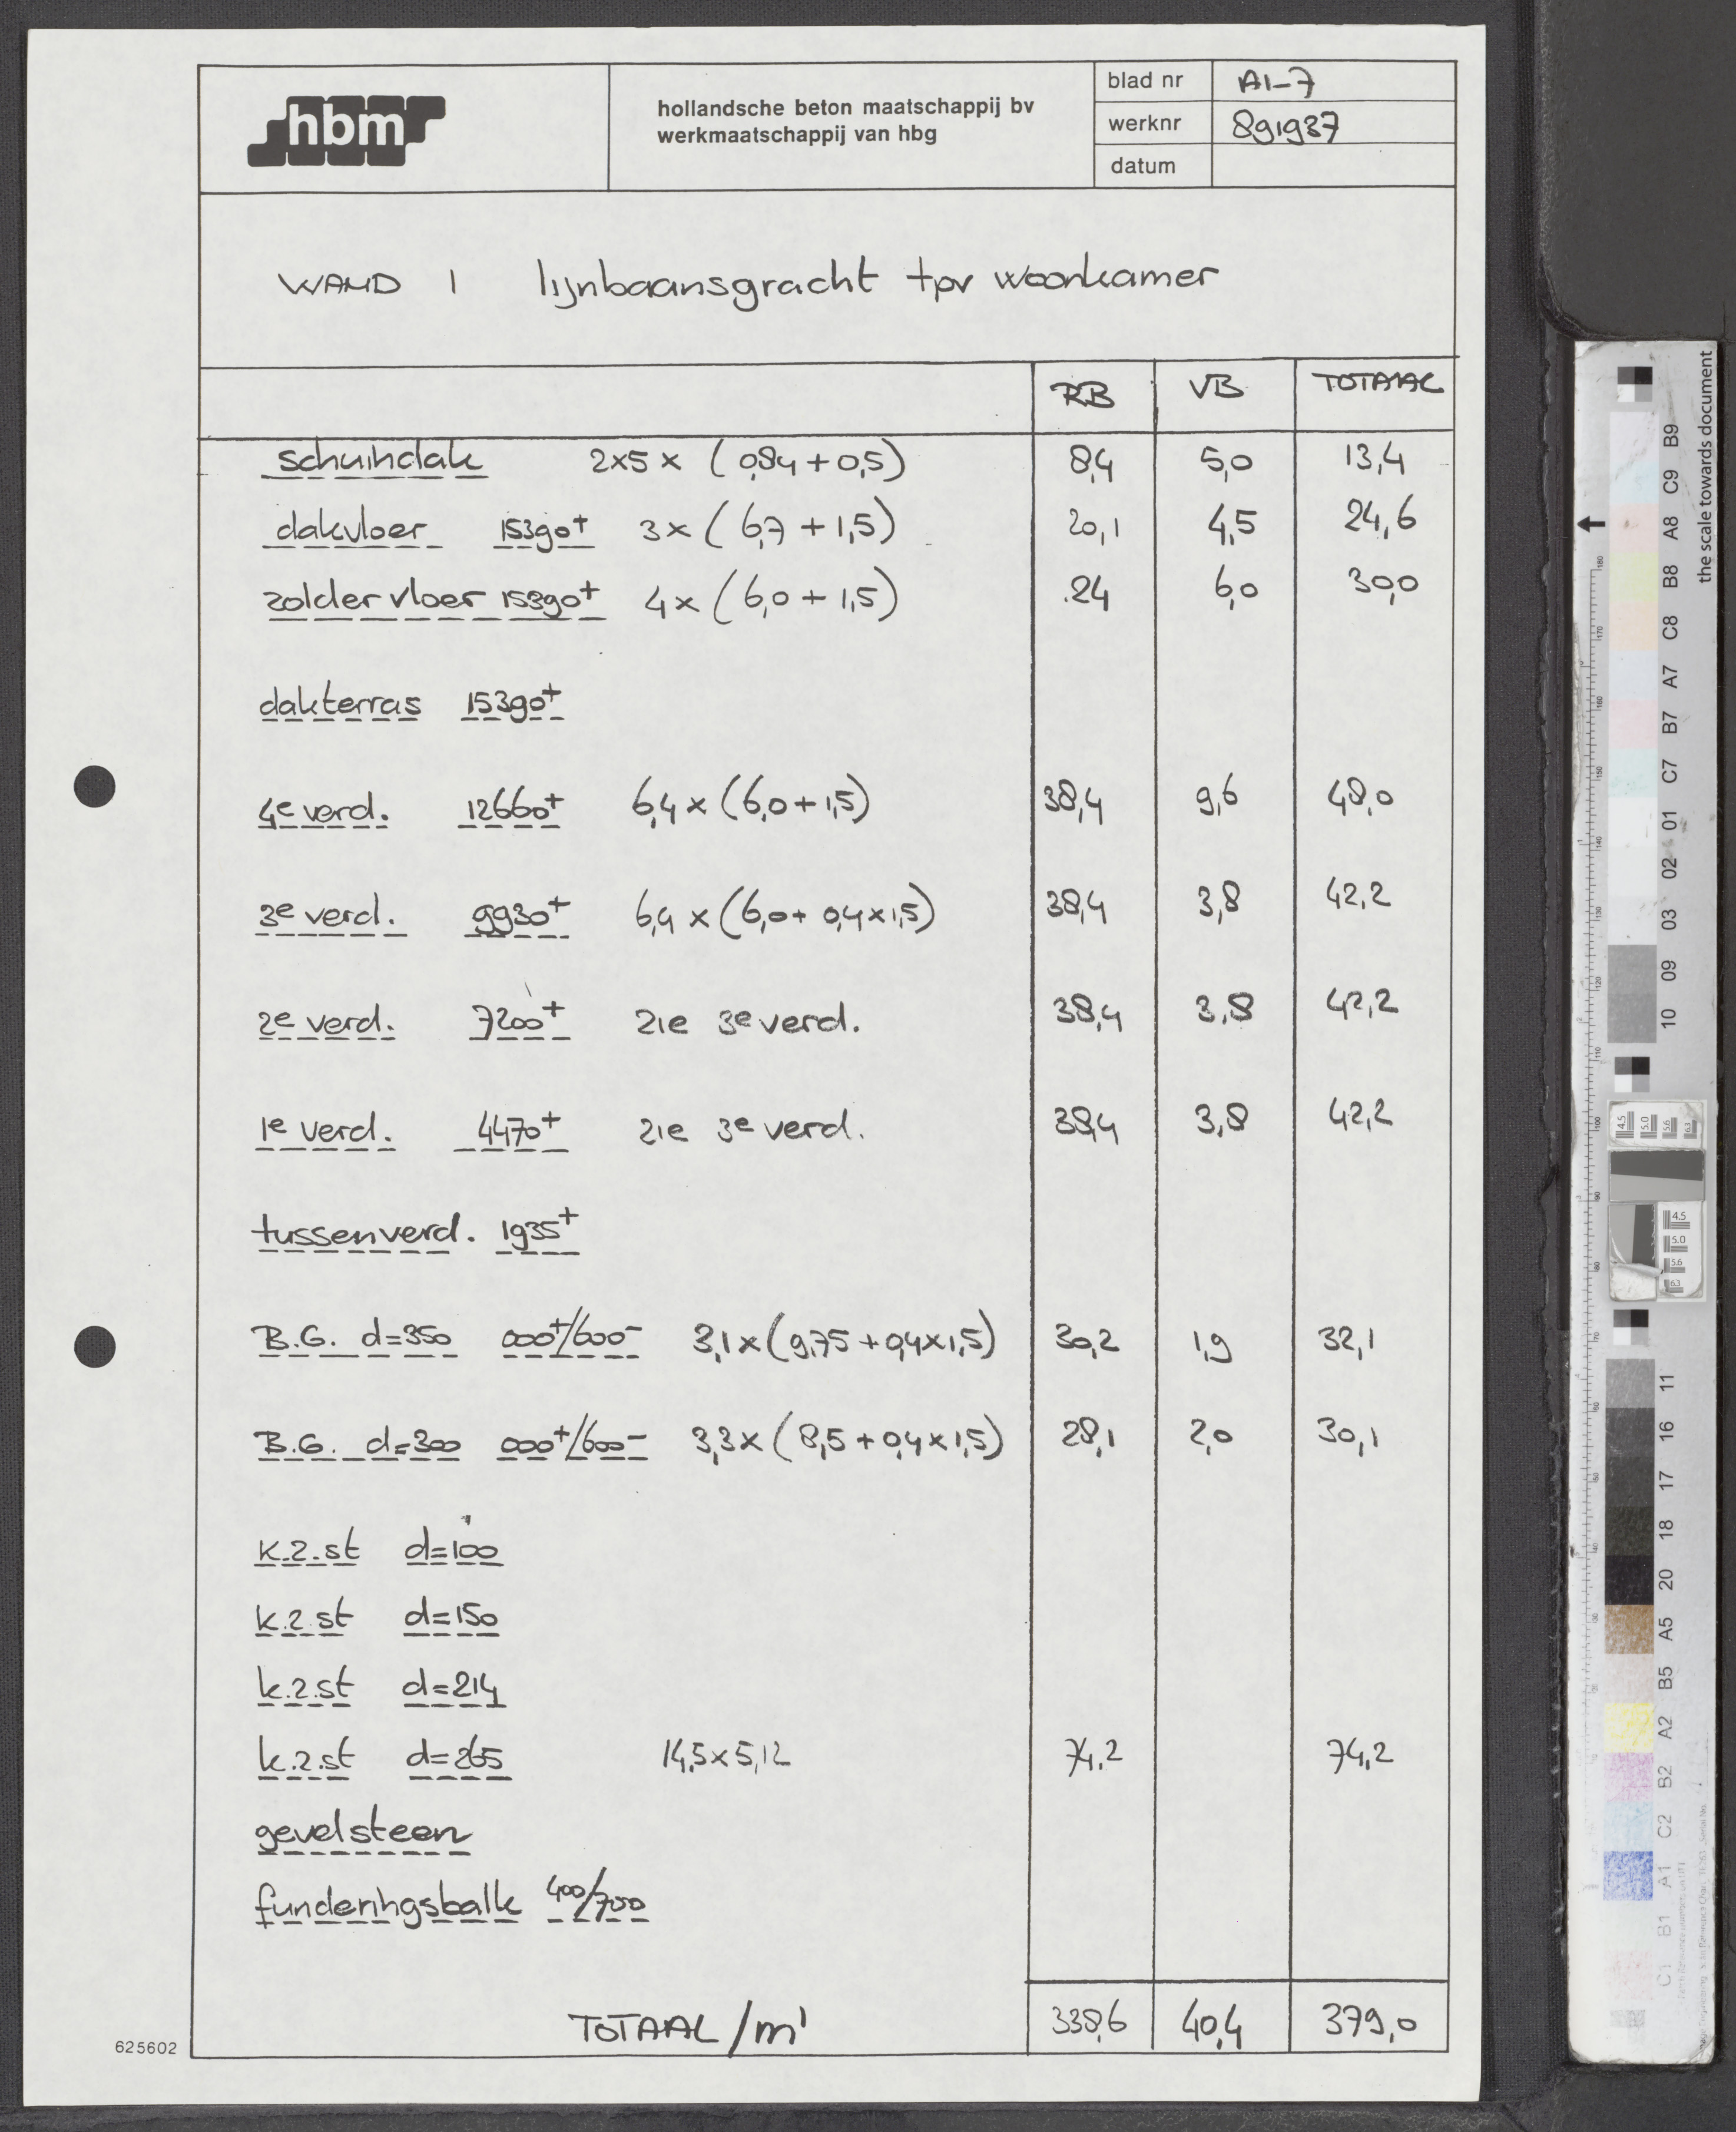 hbm
hollandsche beton maatschappij bv
werkmaatschappij van hbg
blad nr A1-7
werknr 891937
datum
WAND 1 lijnbaansgracht tpv woonkamer
RB VB TOTAAL
schuindak 2x5x (0,84+0,5) 8,4 5,0 13,4
dakvloer 15390+ 3x (6,7 + 1,5) 20,1 4,5 24,6
zoldervloer 15390+ 4x (6,0 + 1,5) 24 6,0 30,0
dakterras 15390+
4e verd. 12660+ 6,4 x (6,0+1,5) 38,4 9,6 48,0
3e verd. 9930+ 6,4 x (6,0+ 0,4x1,5) 38,4 3,8 42,2
2e verd. 7200+ zie 3e verd. 38,4 3,8 42,2
1e verd. 4470+ zie 3e verd. 38,4 3,8 42,2
tussenverd. 1935+
B.G. d=350 000+/600- 3,1x (9,75 + 0,4x1,5) 30,2 1,9 32,1
B.G. d=300 000+/600- 3,3x (8,5 + 0,4x1,5) 28,1 2,0 30,1
k.z.st d=100
k.z.st d=150
k.z.st d=214
k.z.st d=265 14,5x5,12 74,2 74,2
gevelsteen
funderingsbalk 400/700
TOTAAL /m' 338,6 40,4 379,0
625602
the scale towards document
B9
C9
A8
B8
C8
A7
B7
C7
01
02
03
09
10
11
16
17
18
20
A5
B5
A2
B2
C2
A1
B1
C1